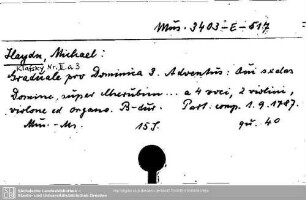 Mus. 3403-E-517
Haydn, Michael:
Klafsky Nr. II a 3
Graduale pro Dominica 3. Adventus: Qui sedes
Domine, super Cherubim ... a 4 voci, 2 violini,
violone ed organo. B-dur. Part. comp. 1.9.1787.
Mus.-Ms. 15 S. qu. 4°
Sächsische Landesbibliothek -